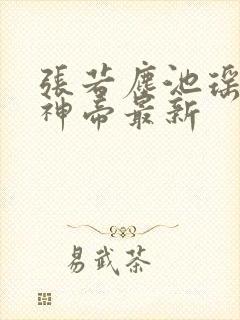 張若塵池瑤
神帝最新
易武茶